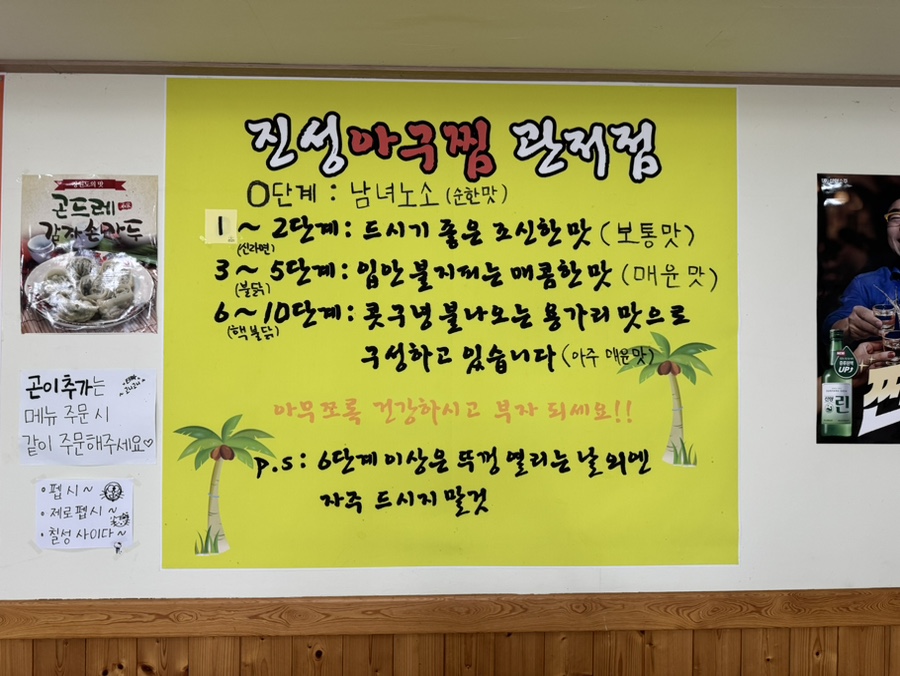 진성아구찜 관저점
0단계 : 남녀노소 (순한맛)
1 ~ 2단계 : 드시기 좋은 조신한 맛 (보통맛)
(신라면)
3 ~ 5단계 : 입안 불지피는 매콤한 맛 (매운 맛)
(불닭)
6 ~ 10단계 : 콧구녕 불나오는 용가리 맛으로
(핵불닭)
구성하고 있습니다 (아주 매운맛)
아무쪼록 건강하시고 부자 되세요!!
p.s : 6단계 이상은 뚜껑 열리는 날 외엔
자주 드시지 말것
강원도의 맛
곤드레
감자손만두
곤이추가는
메뉴 주문 시
같이 주문해주세요♡
• 펩시 ~
• 제로펩시 ~
• 칠성 사이다 ~
UP↑
린
찐